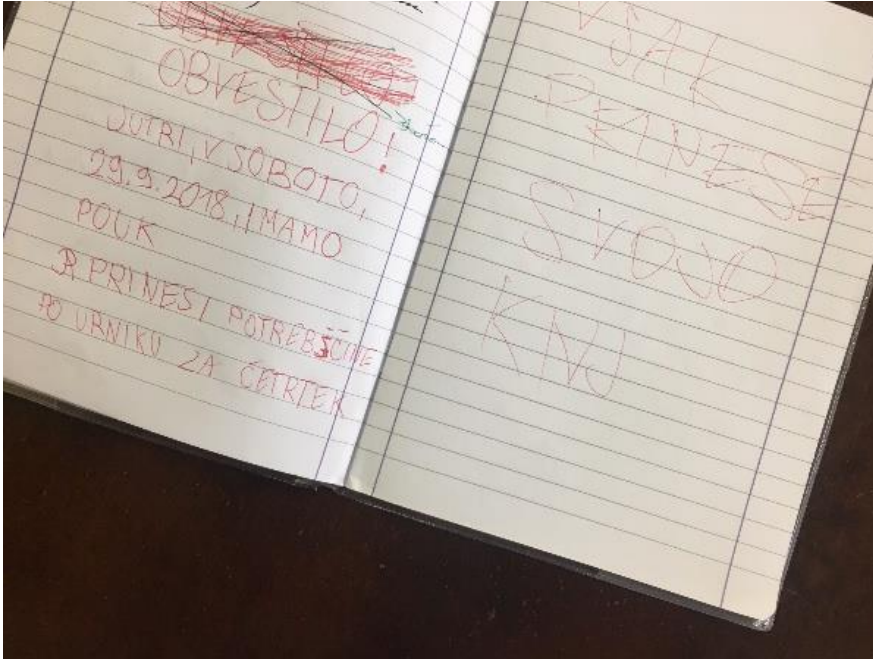 OBVESTILO!
JUTRI, V SOBOTO,
29.9.2018, IMAMO
POUK
PRINESI POTREBŠČINE
PO URNIKU ZA ČETRTEK
VSAK
PRINESE
SVOJO
KNJ